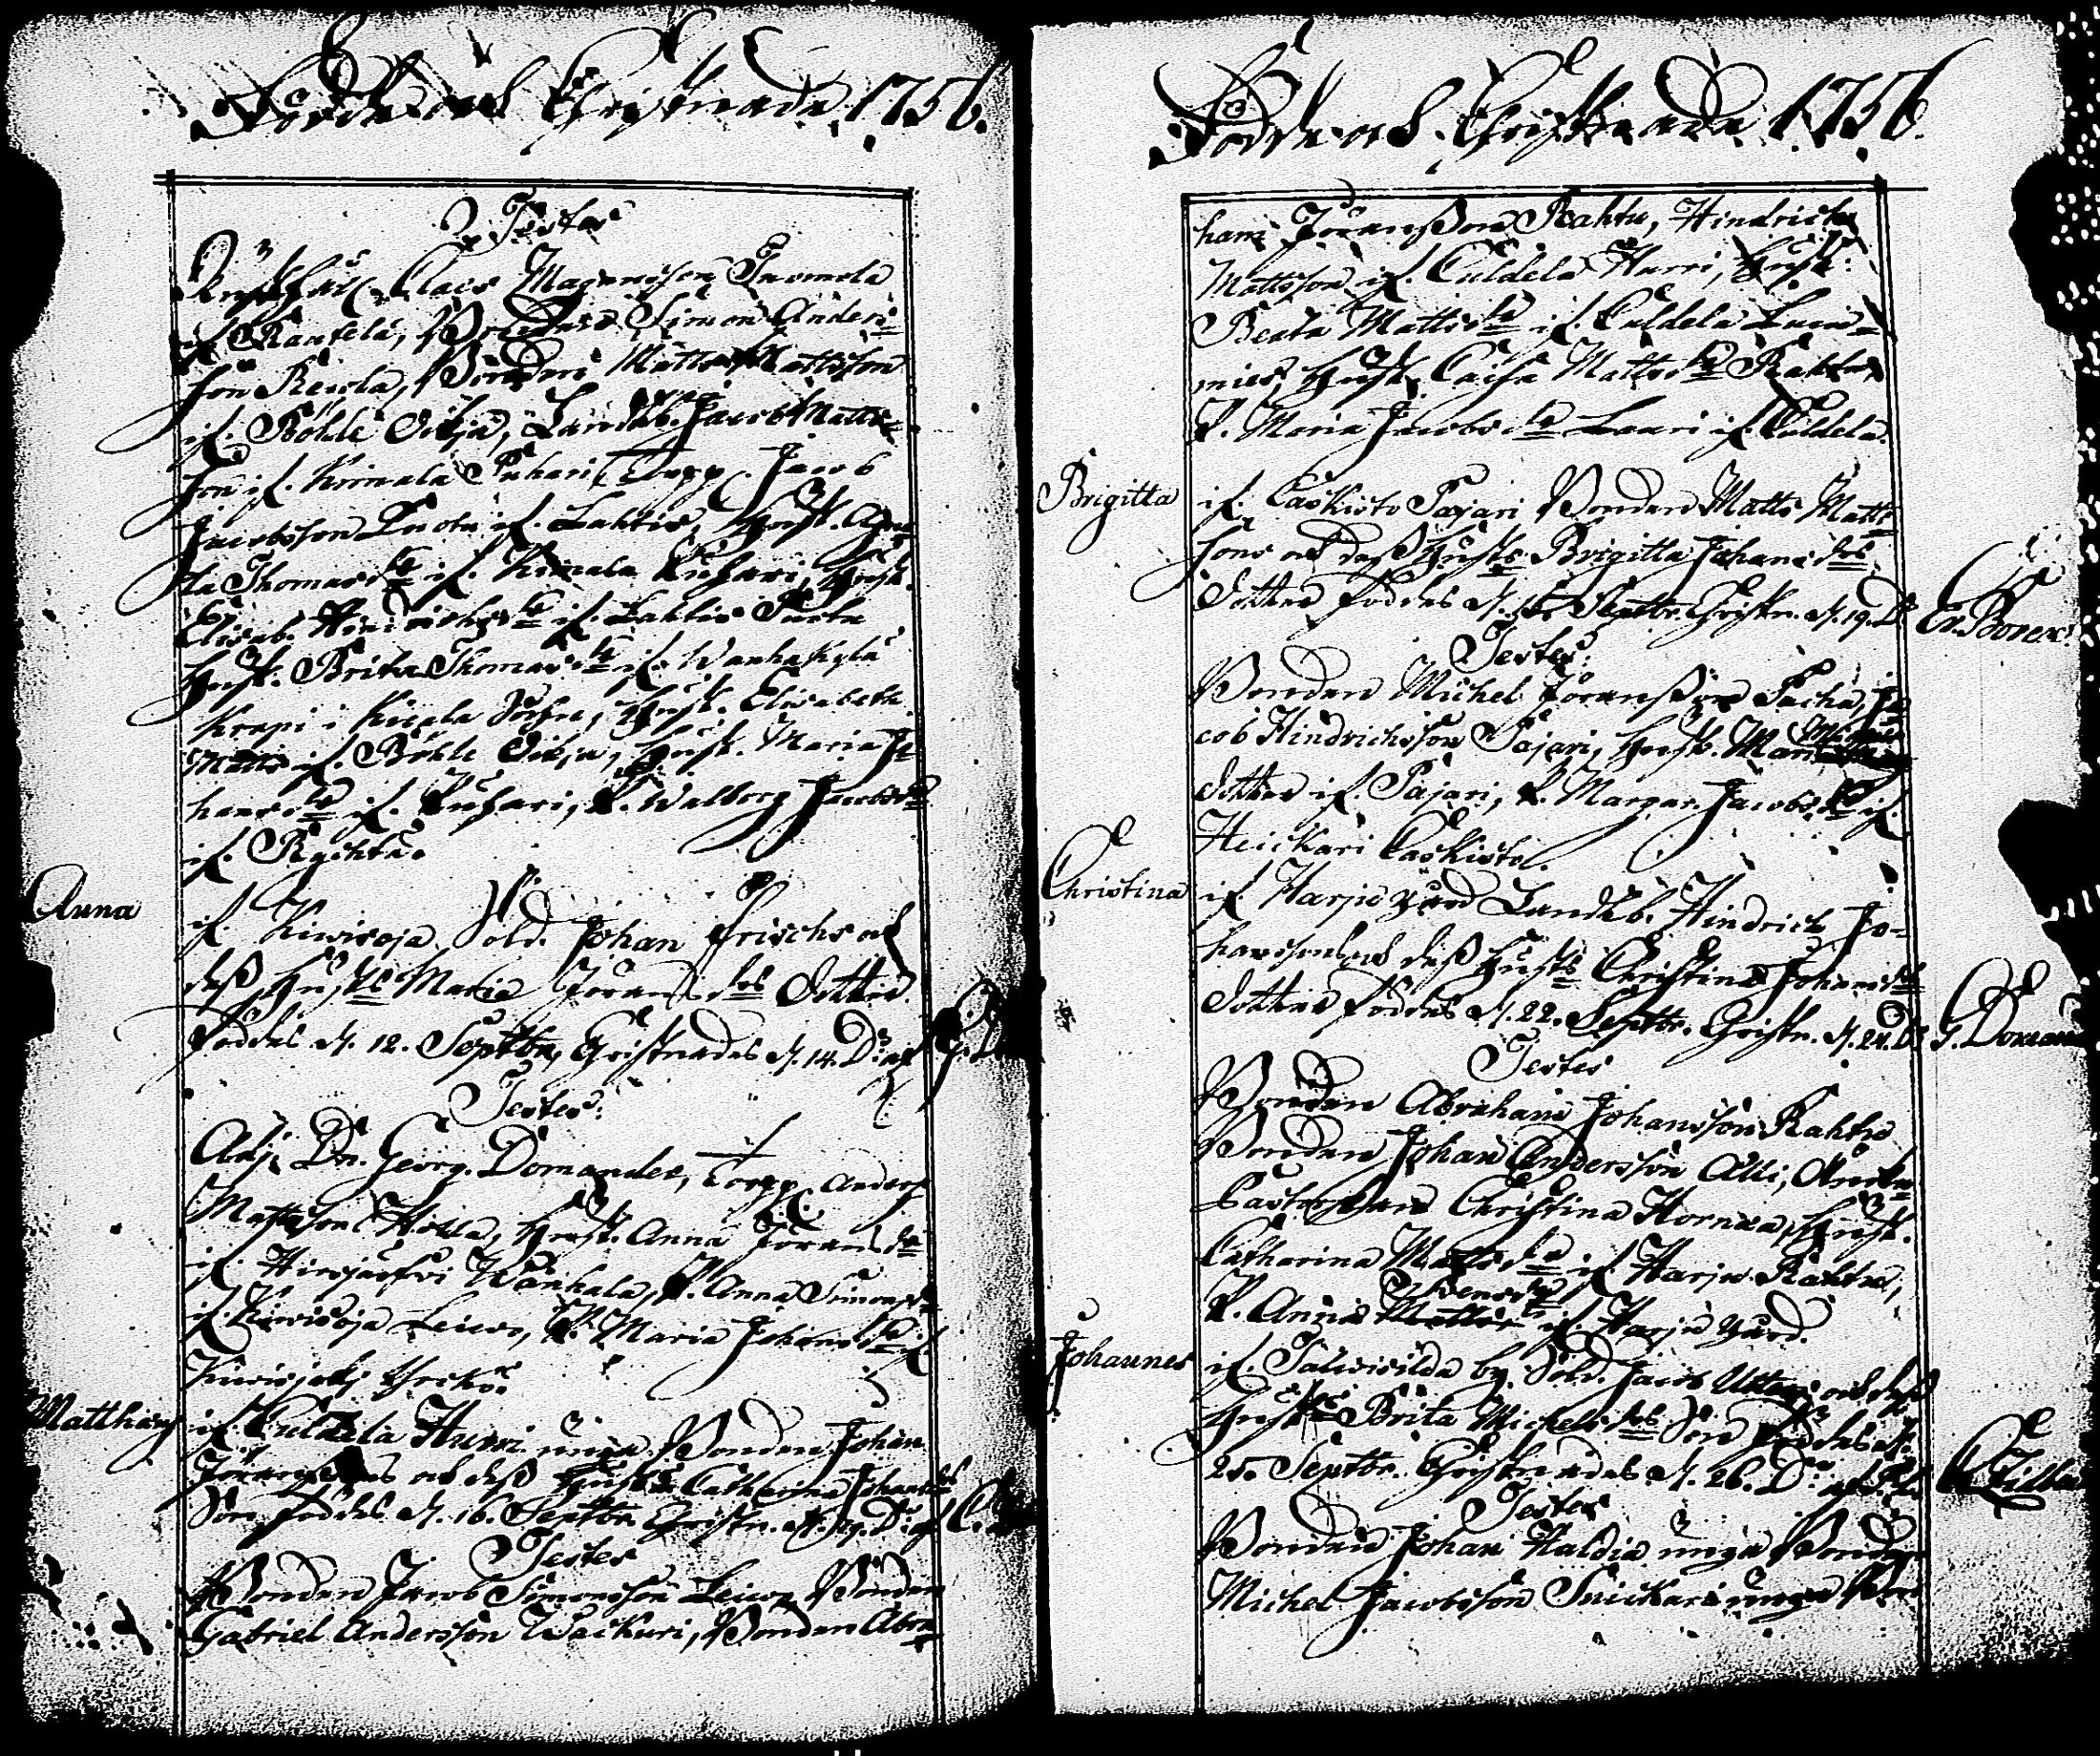 Födde och Christnade 1756.
Testes
Claes Magnusson Tuomola
if. Rantela, Bonden Simon Anders-
son Reiola, Bonden Matts Mattsson
if. Böhle Oikja, Landtb. Jacob Matts-
son if. Kirnala Puhari, Torpp. Jacob
Jacobsson Tuota if. Lahtis, Hust. Agne-
ta Thomas dr if. Kirnala Puhari, Hust.
Elisab. Hindrichs dr if. Lahtis Tuota
Hust. Brita Thomas dr if. Wanhakylä
Krapi i Kirala Sochn, Hust. Elisabeth
Matts if. Böhle Oikja, Hust. Maria Jo-
hans dr if. Puhari, P. Walborg Jacobs dr
if. Rychtu.
Anna
if. Kiwisoja Sold. Johan Frischs och
dess Hustrs Maria Jörans drs Dotter
Föddes d. 12. Septbr, Christnades d. 14. D:o af
Testes:
Adj. Dn. Georg. Domander, Torpp. Anders
Mattsson Hölla, Hust. Anna Jörans dr
if. Hirsjärfvi Wanhala, P. Anna Simons dr
if. Kiwisoja Leiwo, P. Maria Johans dr if.
Matthias
if. Culdela Hurri unga Bonden Johan
Jöranssons och dess Hustrs Catharina Johans drs
Son föddes d. 16. Septbr Christn. d. 19. D:o af
Testes
Bonden Jacob Simonsson Leiwo, Bonden
Gabriel Andersson Wackuri, Bonden Abra-
Födde och Christnade 1756.
ham Jöransson Rahtu, Hindrich
Mattsson if. Culdela Hurri, Hust:
Beata Matts dr if. Culdela Luum-
mies, Hust. Caisa Matts dr Rahtu
P. Maria Jacobs dr Lauri if. Culdela.
Brigitta
if. Caskisto Pajari Bonden Matts Matts-
sons och dess Hustrs Brigitta Johans drs
Dotter föddes d. Septbr. Christn. d. 19. D:o
Testes:
Bonden Michel Jöransson Pacha, Ja-
cob Hindrichsson Pajari, Hust.
Dotter if. Pajari, P. Margar. Jacobs dr if.
Heickari Caskisto.
Christina
if. Harju gård Landtb. Hindrich Jo-
hanssons och dess Hustrs Christina Johans drs
Dotter föddes d. 22. Septbr. Christn. d. 24. D:o G. Domander
Testes
Bonden Abraham Johansson Rahtu
Bonden Johan Andersson Alli,
Christina Hornæa, Hust.
Catharina Matts dr if. Harju Rahtu,
Svens dr
P. Anna if. Harju gård.
Johannes
if. Talwisilda by Sold. Jacob och dess
Hustrs Brita Michels drs Son föddes d.
25. Septbr. Christnades d. 26. D:o
Testes
Bonden Johan Haldia unga Bonden
Michel Jacobsson Snickari unga